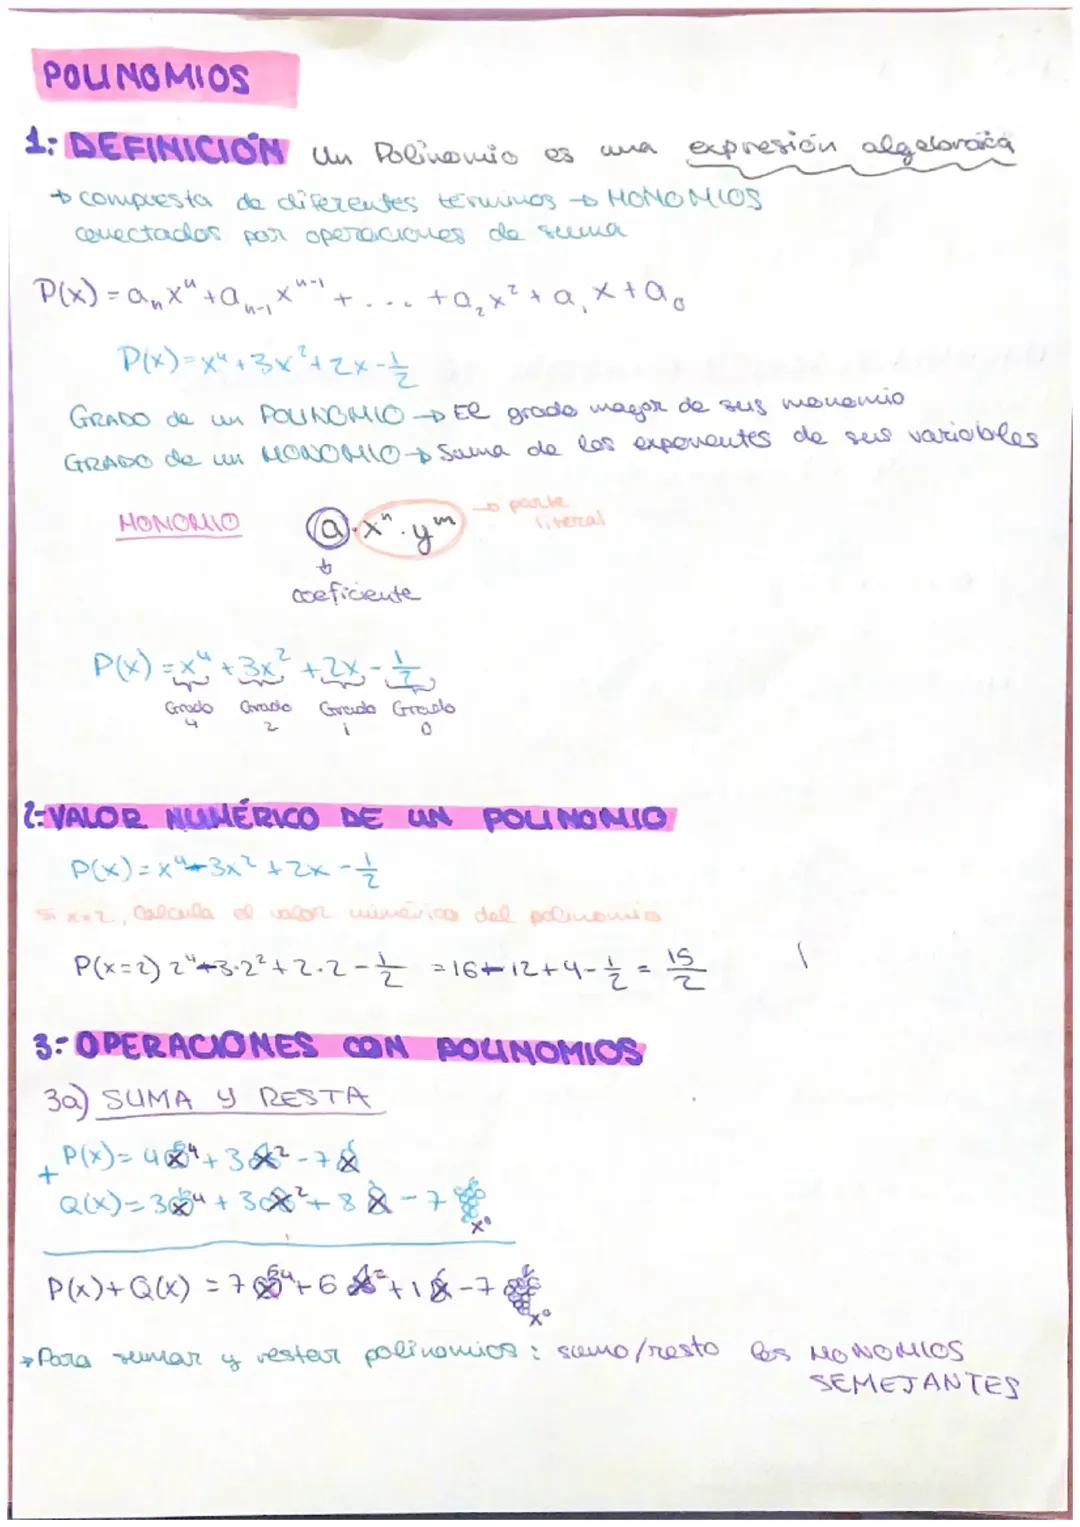 POLINOMIOS
1: DEFINICIÓN Un Polinomio es una expresión algebraica
→ compuesta de diferentes términos → MONOMIOS
conectados por operaciones de suma
P(x) = aₙ xⁿ + aₙ₋₁ xⁿ⁻¹ + ... + a₂ x² + a₁ x + a₀
P(x) = x⁴ + 3x² + 2x - 1/2
GRADO de un POLINOMIO → El grado mayor de sus monomio
GRADO de un MONOMIO → Suma de los exponentes de sus variables
MONOMIO a · xⁿ · yᵐ → parte literal
↓
coeficiente
P(x) = x⁴ + 3x² + 2x - 1/2
Grado 4 Grado 2 Grado 1 Grado 0
2: VALOR NUMÉRICO DE UN POLINOMIO
P(x) = x⁴ - 3x² + 2x - 1/2
Si x=2, Calcula el valor numérico del polinomio
P(x=2) 2⁴ - 3·2² + 2·2 - 1/2 = 16 - 12 + 4 - 1/2 = 15/2
3: OPERACIONES CON POLINOMIOS
3a) SUMA Y RESTA
P(x) = 4x⁴ + 3x² - 7x
+
Q(x) = 3x⁴ + 3x² + 8x - 7 x⁰
P(x) + Q(x) = 7x⁴ + 6x² + 1x - 7 x⁰
→ Para sumar y restar polinomios: sumo/resto los MONOMIOS
SEMEJANTES